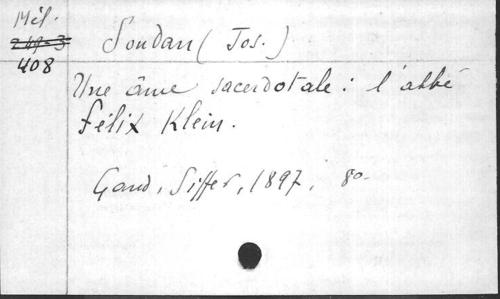 Mél.
249-3
408
Soudan (Jos.)
Une âme sacerdotale : l'abbé
Félix Klein.
Gand, Siffer, 1897, 8o-